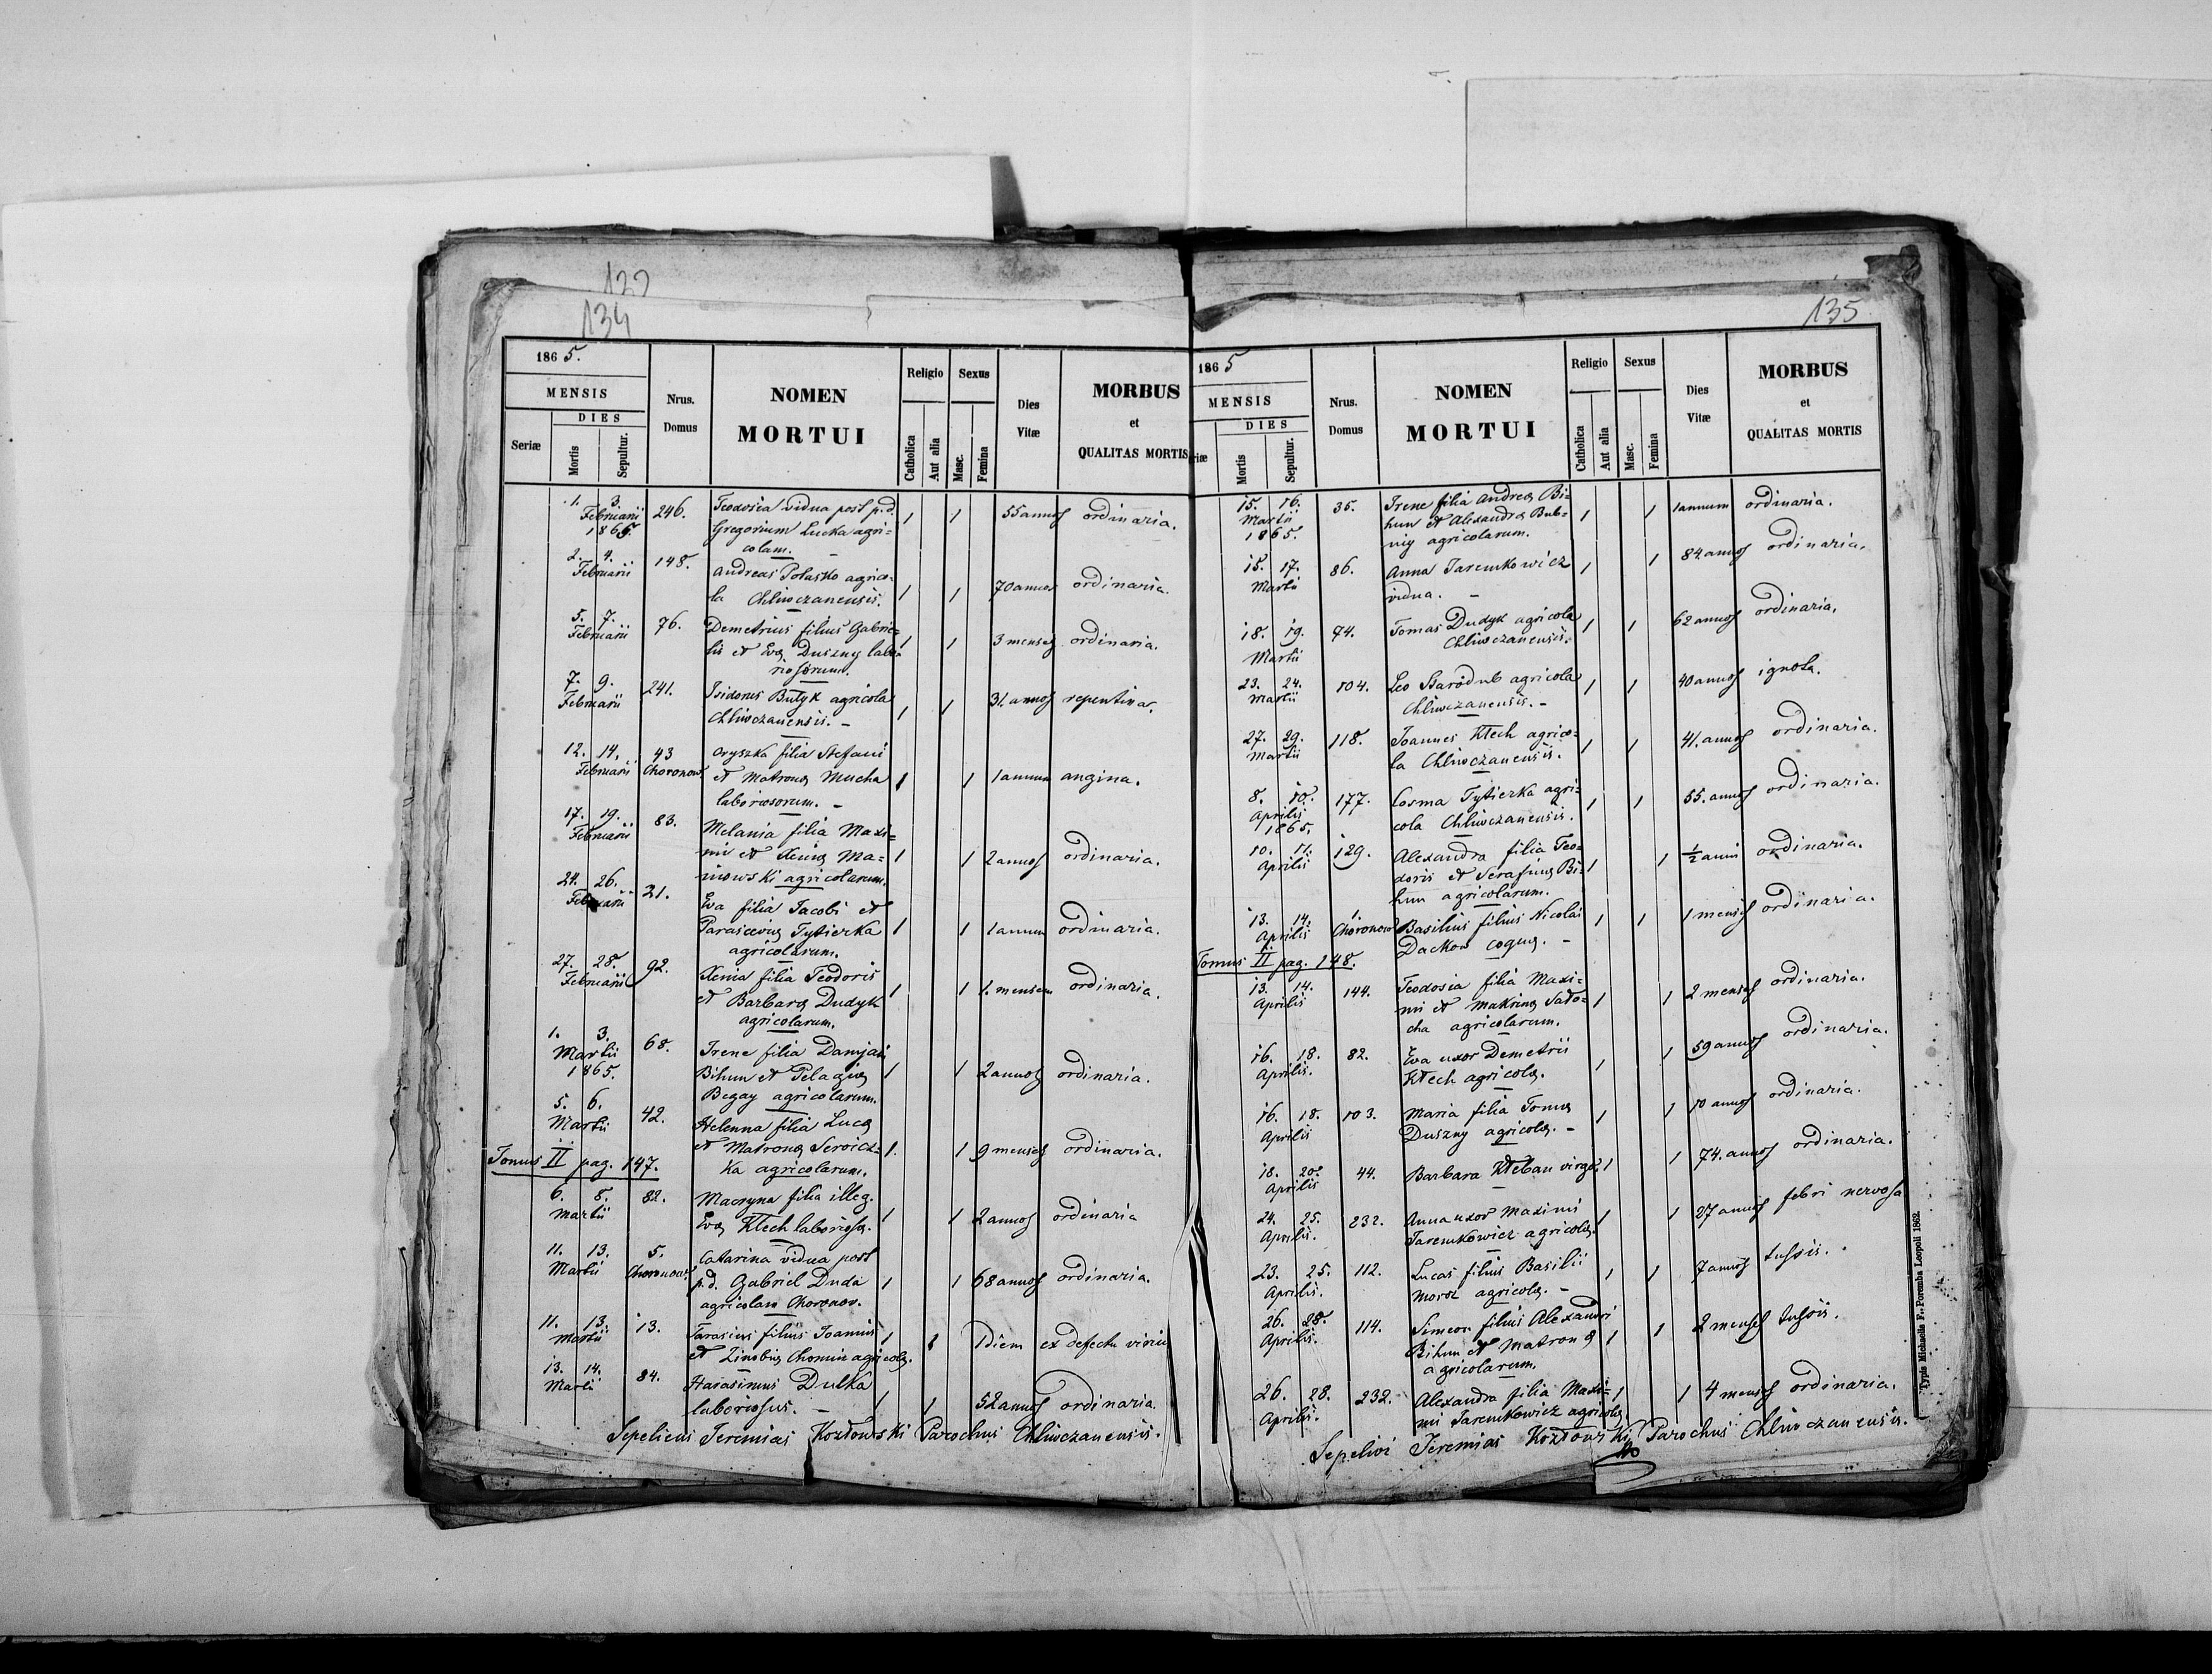 122
134
1865.
MENSIS
DIES
Seriæ
Mortis
Sepultur.
Nrus.
Domus
NOMEN
MORTUI
Religio
Catholica
Aut alia
Sexus
Masc.
Femina
Dies
Vitæ
MORBUS
et
QUALITAS MORTIS
1. 3. 246. Teodosia vidua post p.d.
Februarii Gregorium Lucka agri= 1 1 55 annos ordinaria.
1865. colam.
2. 4. 148. Andreas Polasko agrico=
Februarii la Chliwczanensis. 1 1 70 annos ordinaria.
5. 7. 76. Demetrius filius Gabrie=
Februarii lis et Evæ Duszny labo= 1 1 3 menses ordinaria.
riosorum.
7. 9. 241. Isidorus Butyk agricola
Februarii Chliwczanensis. – 1 1 31. annos repentina.
12. 14. 43 Oryszka filia Stefani
Februarii Choronow et Matronæ Mucha 1 1 1 annum angina.
laboriosorum. –
17. 19. 83. Melania filia Maxi=
Februarii mi et Xeniæ Ma= 1 1 2 annos ordinaria.
mowski agricolarum.
24. 26. 21. Eva filia Jacobi et
Februarii Parascevæ Tytierka 1 1 1 annum ordinaria.
agricolarum.
27. 28. 92. Xenia filia Teodoris
Februarii et Barbaræ Dudyk 1 1 1. mensem ordinaria.
agricolarum.
1. 3. 68. Irene filia Damjani
Martii Bihun et Pelagiæ 1 1 2 annos ordinaria.
1865. Begay agricolarum.
5. 6. 42. Helenna filia Lucæ
Martii et Matronæ Serwicz= 1. 1 9 menses ordinaria.
ka agricolarum.
Tomus II pag. 147.
6. 8. 82. Macryna filia illeg.
Martii Evæ Kłech laboriosæ. 1 1 2 annos ordinaria
11. 13. 5. Catarina vidua post
Martii Choronow. p.d. Gabriel Duda 1 1 68 annos ordinaria.
agricolam Choronow.
11. 13. 13. Tarasius filius Joannis
Martii et Zinobiæ Chomin agricolæ. 1 1 1 diem ex defectu viriu
13. 14. 84. Harasimus Dulka
Martii laboriosus. – 1 1 52 annos ordinaria.
Sepeliens Jeremias Kozłowski Parochus Chliwczanensis.
135
1865
MENSIS
DIES
riæ
Mortis
Sepultur.
Nrus.
Domus
NOMEN
MORTUI
Religio
Catholica
Aut alia
Sexus
Masc.
Femina
Dies
Vitæ
MORBUS
et
QUALITAS MORTIS
15. 16. 35. Irene filia Andreæ Bi=
Martii hun et Alexandræ Bub= 1 1 1 annum ordinaria.
1865. niy agricolarum.
15. 17. 86. Anna Taremkowicz 1 1 84 annos ordinaria.
Martii vidua. –
18. 19. 74. Tomas Dudyk agricola 1 1 62 annos ordinaria.
Martii Chliwczanensis.
23. 24. 104. Leo Starodub agricola 1 1 40 annos ignota.
Martii Chliwczanensis. –
27. 29. 118. Joannes Kłech agrico= 1 1 41. annos ordinaria.
Martii la Chliwczanensis.
8. 10. 177. Cosma Tytierka agri= 1 1 55. annos ordinaria.
Aprilis cola Chliwczanensis.
1865.
10. 11. 129. Alexandra filia Teo=
Aprilis doris et Serafinæ Bi= 1 1 ½ anni ordinaria.
hun agricolarum.
13. 14. 1. Basilius filius Nicolai 1 1 1 mensis ordinaria.
Aprilis Choronow Dackow coquæ. –
Tomus II pag. 148.
13. 14. 144. Teodosia filia Maxi=
Aprilis mi et Makrinæ Sado= 1 1 2 menses ordinaria.
cha agricolarum.
16. 18. 82. Eva uxor Demetrii 1 1 59 annos ordinaria.
Aprilis. Kłech agricolæ.
16. 18. 103. Maria filia Tomæ 1 1 10 annos ordinaria.
Aprilis Duszny agricolæ. –
18. 20. 44. Barbara Kłeban virgo. 1 1 74. annos ordinaria.
Aprilis
24. 25. 232. Anna uxor Maximi 1 1 27 annos febri nervosa
Aprilis. Taremkowicz agricolæ.
23. 25. 112. Lucas filius Basilii 1 1 7 annos tussis.
Aprilis. Moroz agricolæ. –
26. 28. 114. Simeon filius Alexandri
Aprilis. Bihun et Matronæ 1 1 2 menses tussis.
agricolarum.
26. 28. 232. Alexandra filia Maxi= 1 1 4 menses ordinaria.
Aprilis. mi Taremkowicz agricolæ.
Sepelivi Jeremias Kozłowski Parochus Chliwczanensis.
Typis Michaelis F. Poremba Leopoli 1862